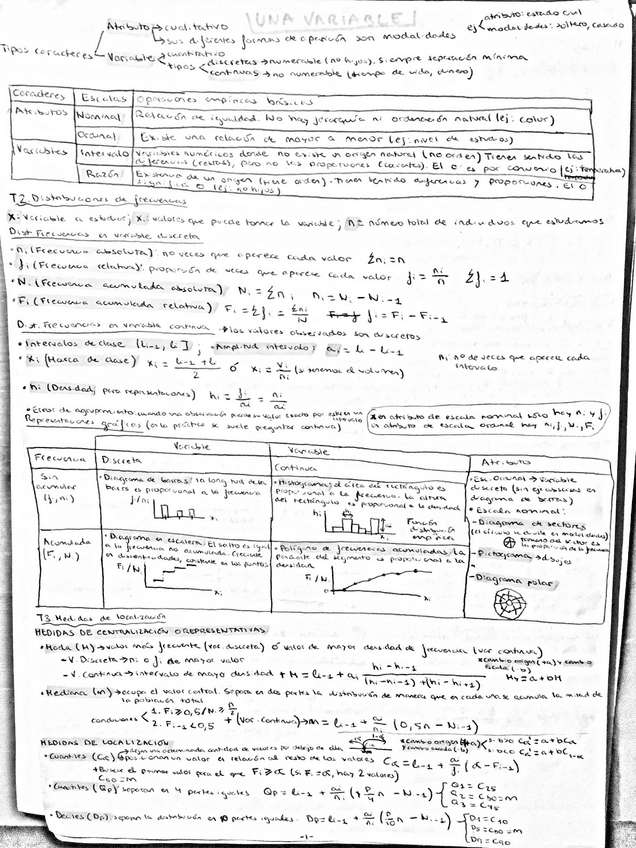 UNA VARIABLE
Tipos caracteres
Atributo → cualitativo
→ sus diferentes formas de aparición son modalidades
ej atributo: estado civil
modalidades: soltero, casado
Variable → cuantitativo
tipos discretas → numerable (nº hijos), siempre separación mínima
continuas → no numerable (tiempo de vida, dinero)
Caracteres Escalas Operaciones empíricas básicas
Atributos Nominal Relación de igualdad. No hay jerarquía ni ordenación natural (ej: color)
Ordinal Existe una relación de mayor a menor (ej: nivel de estudios)
Variables Intervalo Variables numéricas donde no existe un origen natural (no orden) Tienen sentido las
diferencias (restas), pero no las proporciones (cocientes). El 0 es por convenio (ej: temperatura)
Razón Existencia de un origen (tiene orden). Tienen sentido diferencias y proporciones. El 0
significa 0 (ej: nº hijos)
T2. Distribuciones de frecuencias
X: variable a estudiar; xi: valores que puede tomar la variable; n = número total de individuos que estudiamos
Dist. Frecuencias en variable discreta
• ni (Frecuencia absoluta): nº veces que aparece cada valor Σni = n
• fi (Frecuencia relativa): proporción de veces que aparece cada valor fi = ni/n Σfi = 1
• Ni (Frecuencia acumulada absoluta) Ni = Σni ni = Ni - Ni-1
• Fi (Frecuencia acumulada relativa) Fi = Σfi = Σni/N fi = Fi - Fi-1
Dist. Frecuencias en variable continua → los valores observados son discretos
• Intervalos de clase [Li-1, Li]; • Amplitud intervalo: ai = Li - Li-1
• xi (Marca de clase) xi = Li-1 + Li / 2 ó xi = Vi/ni (si tenemos el volumen)
ni: nº de veces que aparece cada
intervalo
• hi (Densidad) para representaciones) hi = fi/ai = ni/ai
• Error de agrupamiento: cuando una observación pierde su valor exacto por estar en un intervalo
Representaciones gráficas (en la práctica se suele preguntar continua)
* en atributo de escala nominal sólo hay ni y fi
en atributo de escala ordinal hay ni, fi, Ni, Fi
Frecuencia Variable Discreta Variable Continua Atributo
Sin acumular (fi, ni)
• Diagrama de barras: la longitud de las
barras es proporcional a la frecuencia
fi/ni
xi
• Histograma: el área del rectángulo es
proporcional a la frecuencia. La altura
del rectángulo es proporcional a la densidad
hi
xi
Función
distribución
empírica
• Esc. Ordinal → Variable
discreta
diagrama de barras)
• Escala nominal:
- Diagrama de sectores
(el círculo se divide en modalidades)
tamaño del sector es
la proporción de la frecuencia
- Pictograma → dibujos
- Diagrama polar
Acumulada (Fi, Ni)
• Diagrama en escalera: El salto es igual
a la frecuencia no acumulada. Creciente
Fi/Ni
xi
• Polígono de frecuencias acumuladas: la
pendiente del segmento es proporcional a la
densidad.
Fi/Ni
xi
T3. Medidas de localización
MEDIDAS DE CENTRALIZACIÓN O REPRESENTATIVAS
• Moda (M) → valor más frecuente (var. discreta) ó valor de mayor densidad de frecuencia (var continua)
- V. Discreta → ni o fi de mayor valor
- V. Continua → intervalo de mayor densidad → M = Li-1 + ai hi - hi-1 / (hi - hi-1) + (hi - hi+1)
* cambio origen (a) y cambio
escala (b)
My = a + bM
• Mediana (m) → ocupa el valor central. Separa en dos partes la distribución de manera que en cada una se acumula la mitad de
la población total
condiciones 1. Fi ≥ 0,5 / Ni ≥ n/2
2. Fi-1 < 0,5
+ (Var. continua) → m = Li-1 + ai/ni (0,5n - Ni-1)
MEDIDAS DE LOCALIZACIÓN
• Cuantiles (Cα) → posicionan un valor en relación al resto de los valores Cα = Li-1 + ai/fi (α - Fi-1)
+ Buscar el primer valor para el que Fi ≥ α (si Fi = α, hay 2 valores)
C50 = m
• Cuartiles (Qp) separan en 4 partes iguales Qp = Li-1 + ai/ni (p/4 n - Ni-1)
Q1 = C25
Q2 = C50 = m
Q3 = C75
• Deciles (Dp): separan la distribución en 10 partes iguales. Dp = Li-1 + ai/ni (p/10 n - Ni-1)
D1 = C10
D5 = C50 = m
D9 = C90
-1-